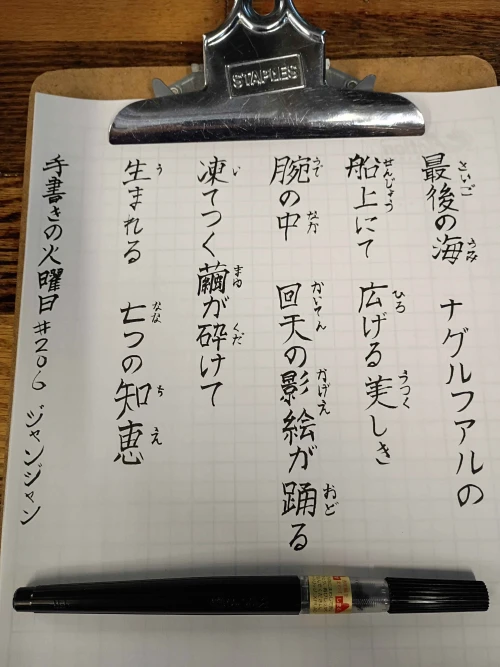 STAPLES
最後の海 ナグルファルの
船上にて 広げる美しき
腕の中 回天の影絵が踊る
凍てつく繭が砕けて
生まれる 七つの知恵
手書きの火曜日 #206 ジャンジャン
さいご うみ
せんじょう ひろ うつく
うで なか かいてん かげえ おど
い まゆ くだ
う なな ち え